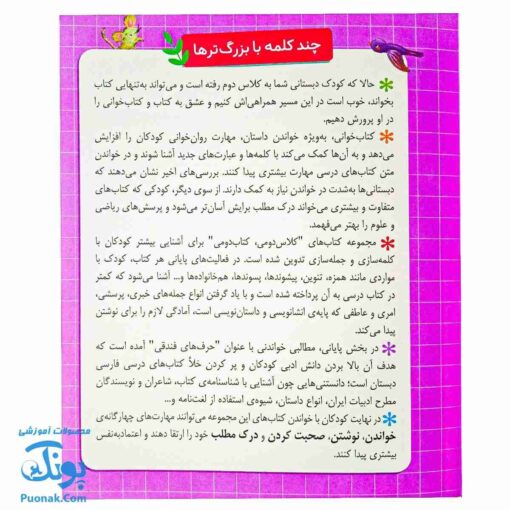 چند کلمه با بزرگ‌ترها
حالا که کودک دبستانی شما به کلاس دوم رفته است و می‌تواند به‌تنهایی کتاب
بخواند، خوب است در این مسیر همراهی‌اش کنیم و عشق به کتاب و کتاب‌خوانی را
در او پرورش دهیم.
کتاب‌خوانی، به‌ویژه خواندن داستان، مهارت روان‌خوانی کودکان را افزایش
می‌دهد و به آن‌ها کمک می‌کند با کلمه‌ها و عبارت‌های جدید آشنا شوند و در خواندن
متن کتاب‌های درسی مهارت بیشتری پیدا کنند. بررسی‌های اخیر نشان می‌دهند که
دبستانی‌ها به‌شدت در خواندن نیاز به کمک دارند. از سوی دیگر، کودکی که کتاب‌های
متفاوت و بیشتری می‌خواند درک مطلب برایش آسان‌تر می‌شود و پرسش‌های ریاضی
و علوم را بهتر می‌فهمد.
مجموعه کتاب‌های "کلاس‌دومی، کتاب‌دومی" برای آشنایی بیشتر کودکان با
کلمه‌سازی و جمله‌سازی تدوین شده است. در فعالیت‌های پایانی هر کتاب، کودک با
مواردی مانند همزه، تنوین، پیشوندها، پسوندها، هم‌خانواده‌ها و... آشنا می‌شود که کمتر
در کتاب درسی به آن پرداخته شده است و با یاد گرفتن انواع جمله‌های خبری، پرسشی،
امری و عاطفی که پایه‌ی انشانویسی و داستان‌نویسی است، آمادگی لازم را برای نوشتن
پیدا می‌کند.
در بخش پایانی، مطالبی خواندنی با عنوان "حرف‌های فندقی" آمده است که
هدف آن بالا بردن دانش ادبی کودکان و پر کردن خلأ کتاب‌های درسی فارسی
دبستان است؛ دانستنی‌هایی چون آشنایی با شناسنامه‌ی کتاب، شاعران و نویسندگان
مطرح ادبیات ایران، انواع داستان، شیوه‌ی استفاده از لغت‌نامه و...
در نهایت کودکان با خواندن کتاب‌های این مجموعه می‌توانند مهارت‌های چهارگانه‌ی
خواندن، نوشتن، صحبت کردن و درک مطلب خود را ارتقا دهند و اعتمادبه‌نفس
بیشتری پیدا کنند.
محصولات آموزشی
پونک
Puonak.Com